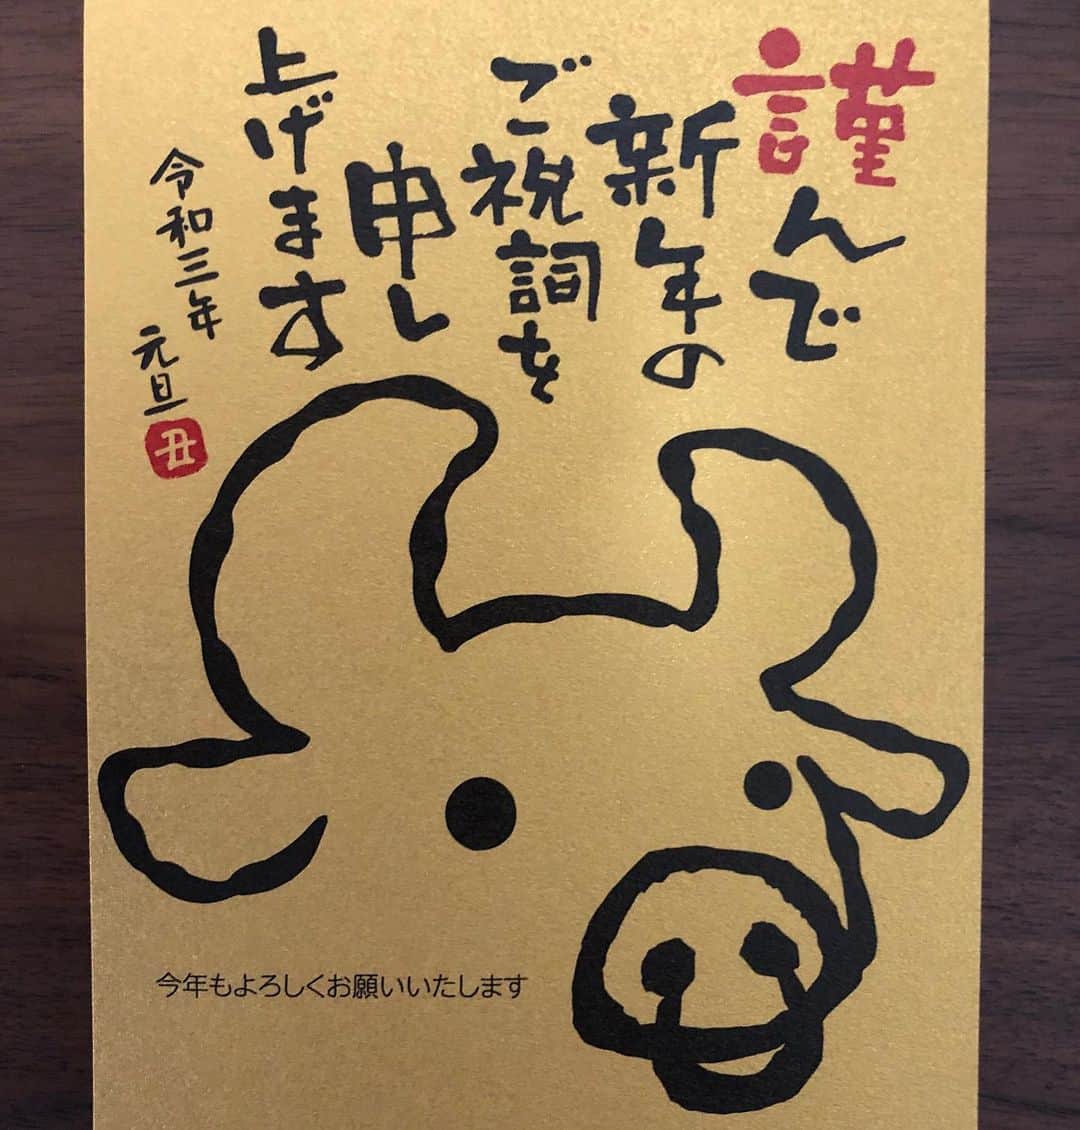 謹んで
新年の
ご祝詞を
申し
上げます
令和三年
元旦
丑
今年もよろしくお願いいたします